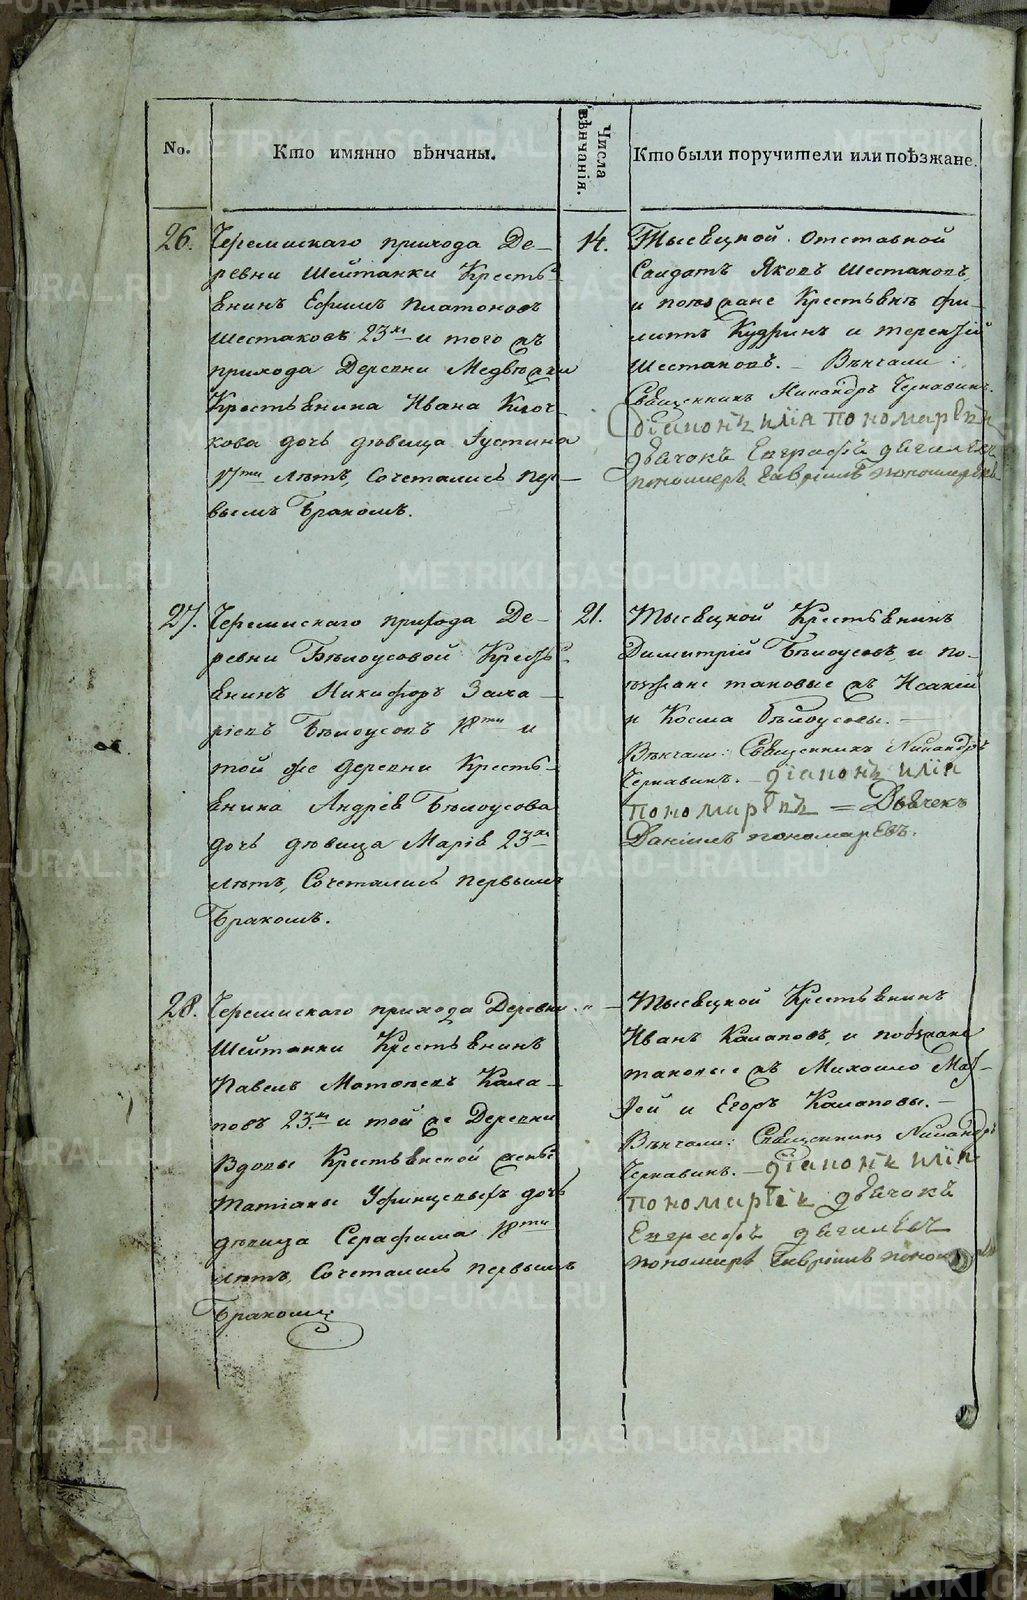 No.
Кто имянно вѣнчаны.
Числа вѣнчанія.
Кто были поручители или поѣзжане.
26.
Черемискаго прихода Де-
ревни Шейтанки Кресть-
янинъ Ефимъ Платоновъ
Шестаковъ 23хъ и того жъ
прихода Деревни Медвѣжки
Крестьянина Ивана Клоч-
кова дочь дѣвица Іустина
17ти лѣтъ, Сочетались пер-
вымъ Бракомъ.
14.
Тысяцкой Отставной
Салдатъ Яковъ Шестаковъ,
и поѣзжане Крестьяне Фи-
липъ Кудринъ и Терентій
Шестаковъ. Вѣнчали:
Священникъ Никандръ Чернавинъ.
діаконъ илія пономаревъ
дьячокъ Евграфъ
пономарь Гавріилъ пономаревъ
27.
Черемискаго прихода Де-
ревни Бѣлоусовой Кресть-
янинъ Никифоръ Заха-
ріевъ Бѣлоусовъ 18ти и
той же деревни Кресть-
янина Андрея Бѣлоусова
дочь дѣвица Марія 23хъ
лѣтъ, Сочетались первымъ
Бракомъ.
21.
Тысяцкой Крестьянинъ
Димитрій Бѣлоусовъ, и по-
ѣзжане таковые жъ Исакій
и Косма Бѣлоусовы.
Вѣнчали: Священникъ Никандръ
Чернавинъ. діаконъ илія
пономаревъ = Дьячекъ
Даніилъ пономаревъ.
28.
Черемискаго прихода Деревни
Шейтанки Крестьянинъ
Павелъ Матвѣевъ Кала-
повъ 23хъ и той же Деревни
Вдовы Крестьянской жены
Татіаны Уфинцевыхъ дочь
дѣвица Серафима 18ти
лѣтъ, Сочетались первымъ
Бракомъ.
"
Тысяцкой Крестьянинъ
Иванъ Калаповъ, и поѣзжане
таковые жъ Михайло Мат-
фей и Егоръ Калаповы.
Вѣнчали: Священникъ Никандръ
Чернавинъ. діаконъ илія
пономаревъ дьячокъ
Евграфъ
пономарь Гавріилъ
METRIKI.GASO-URAL.RU